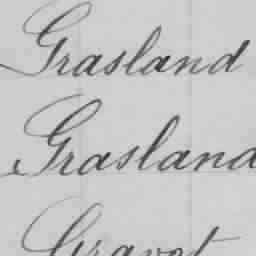 Grasland
Grasland
Gravot